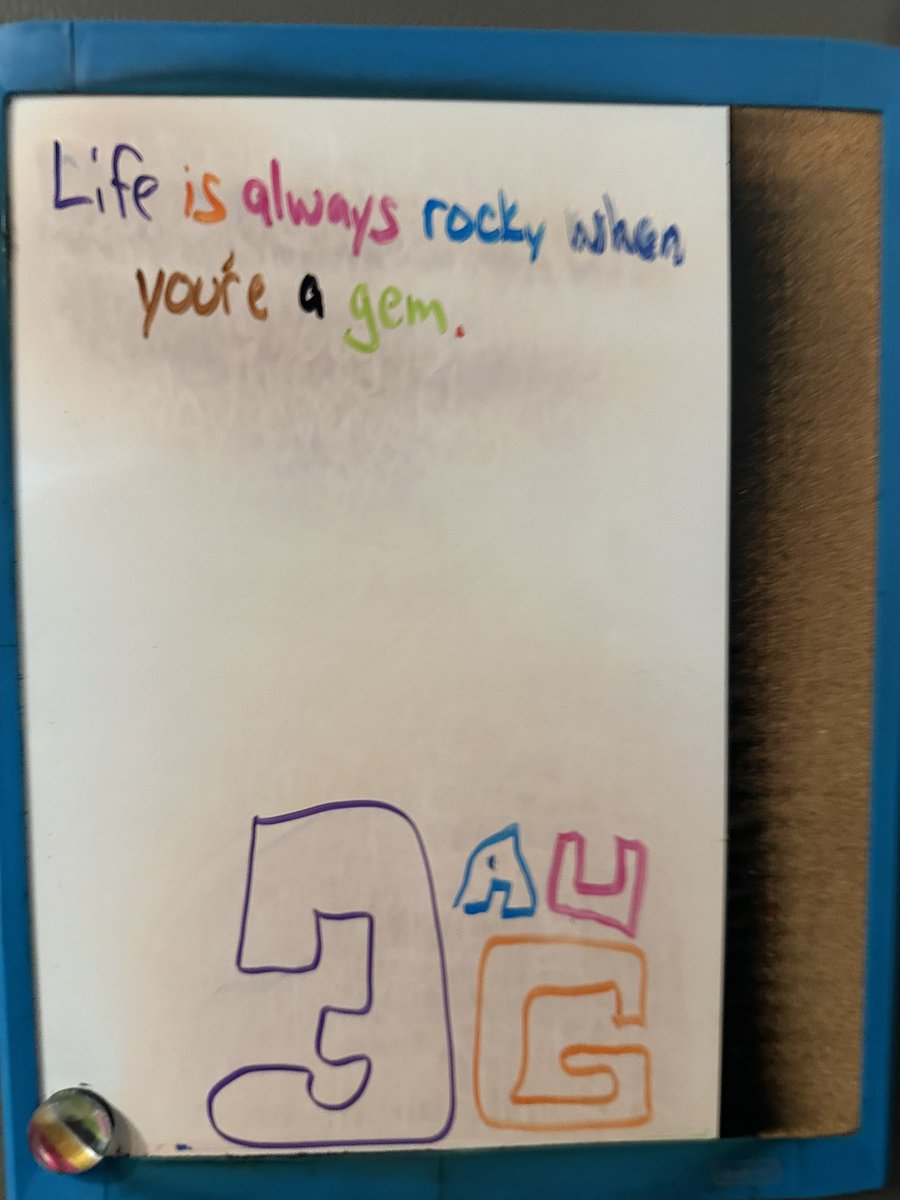 Life is always rocky when
you're a gem.
3 AU
G